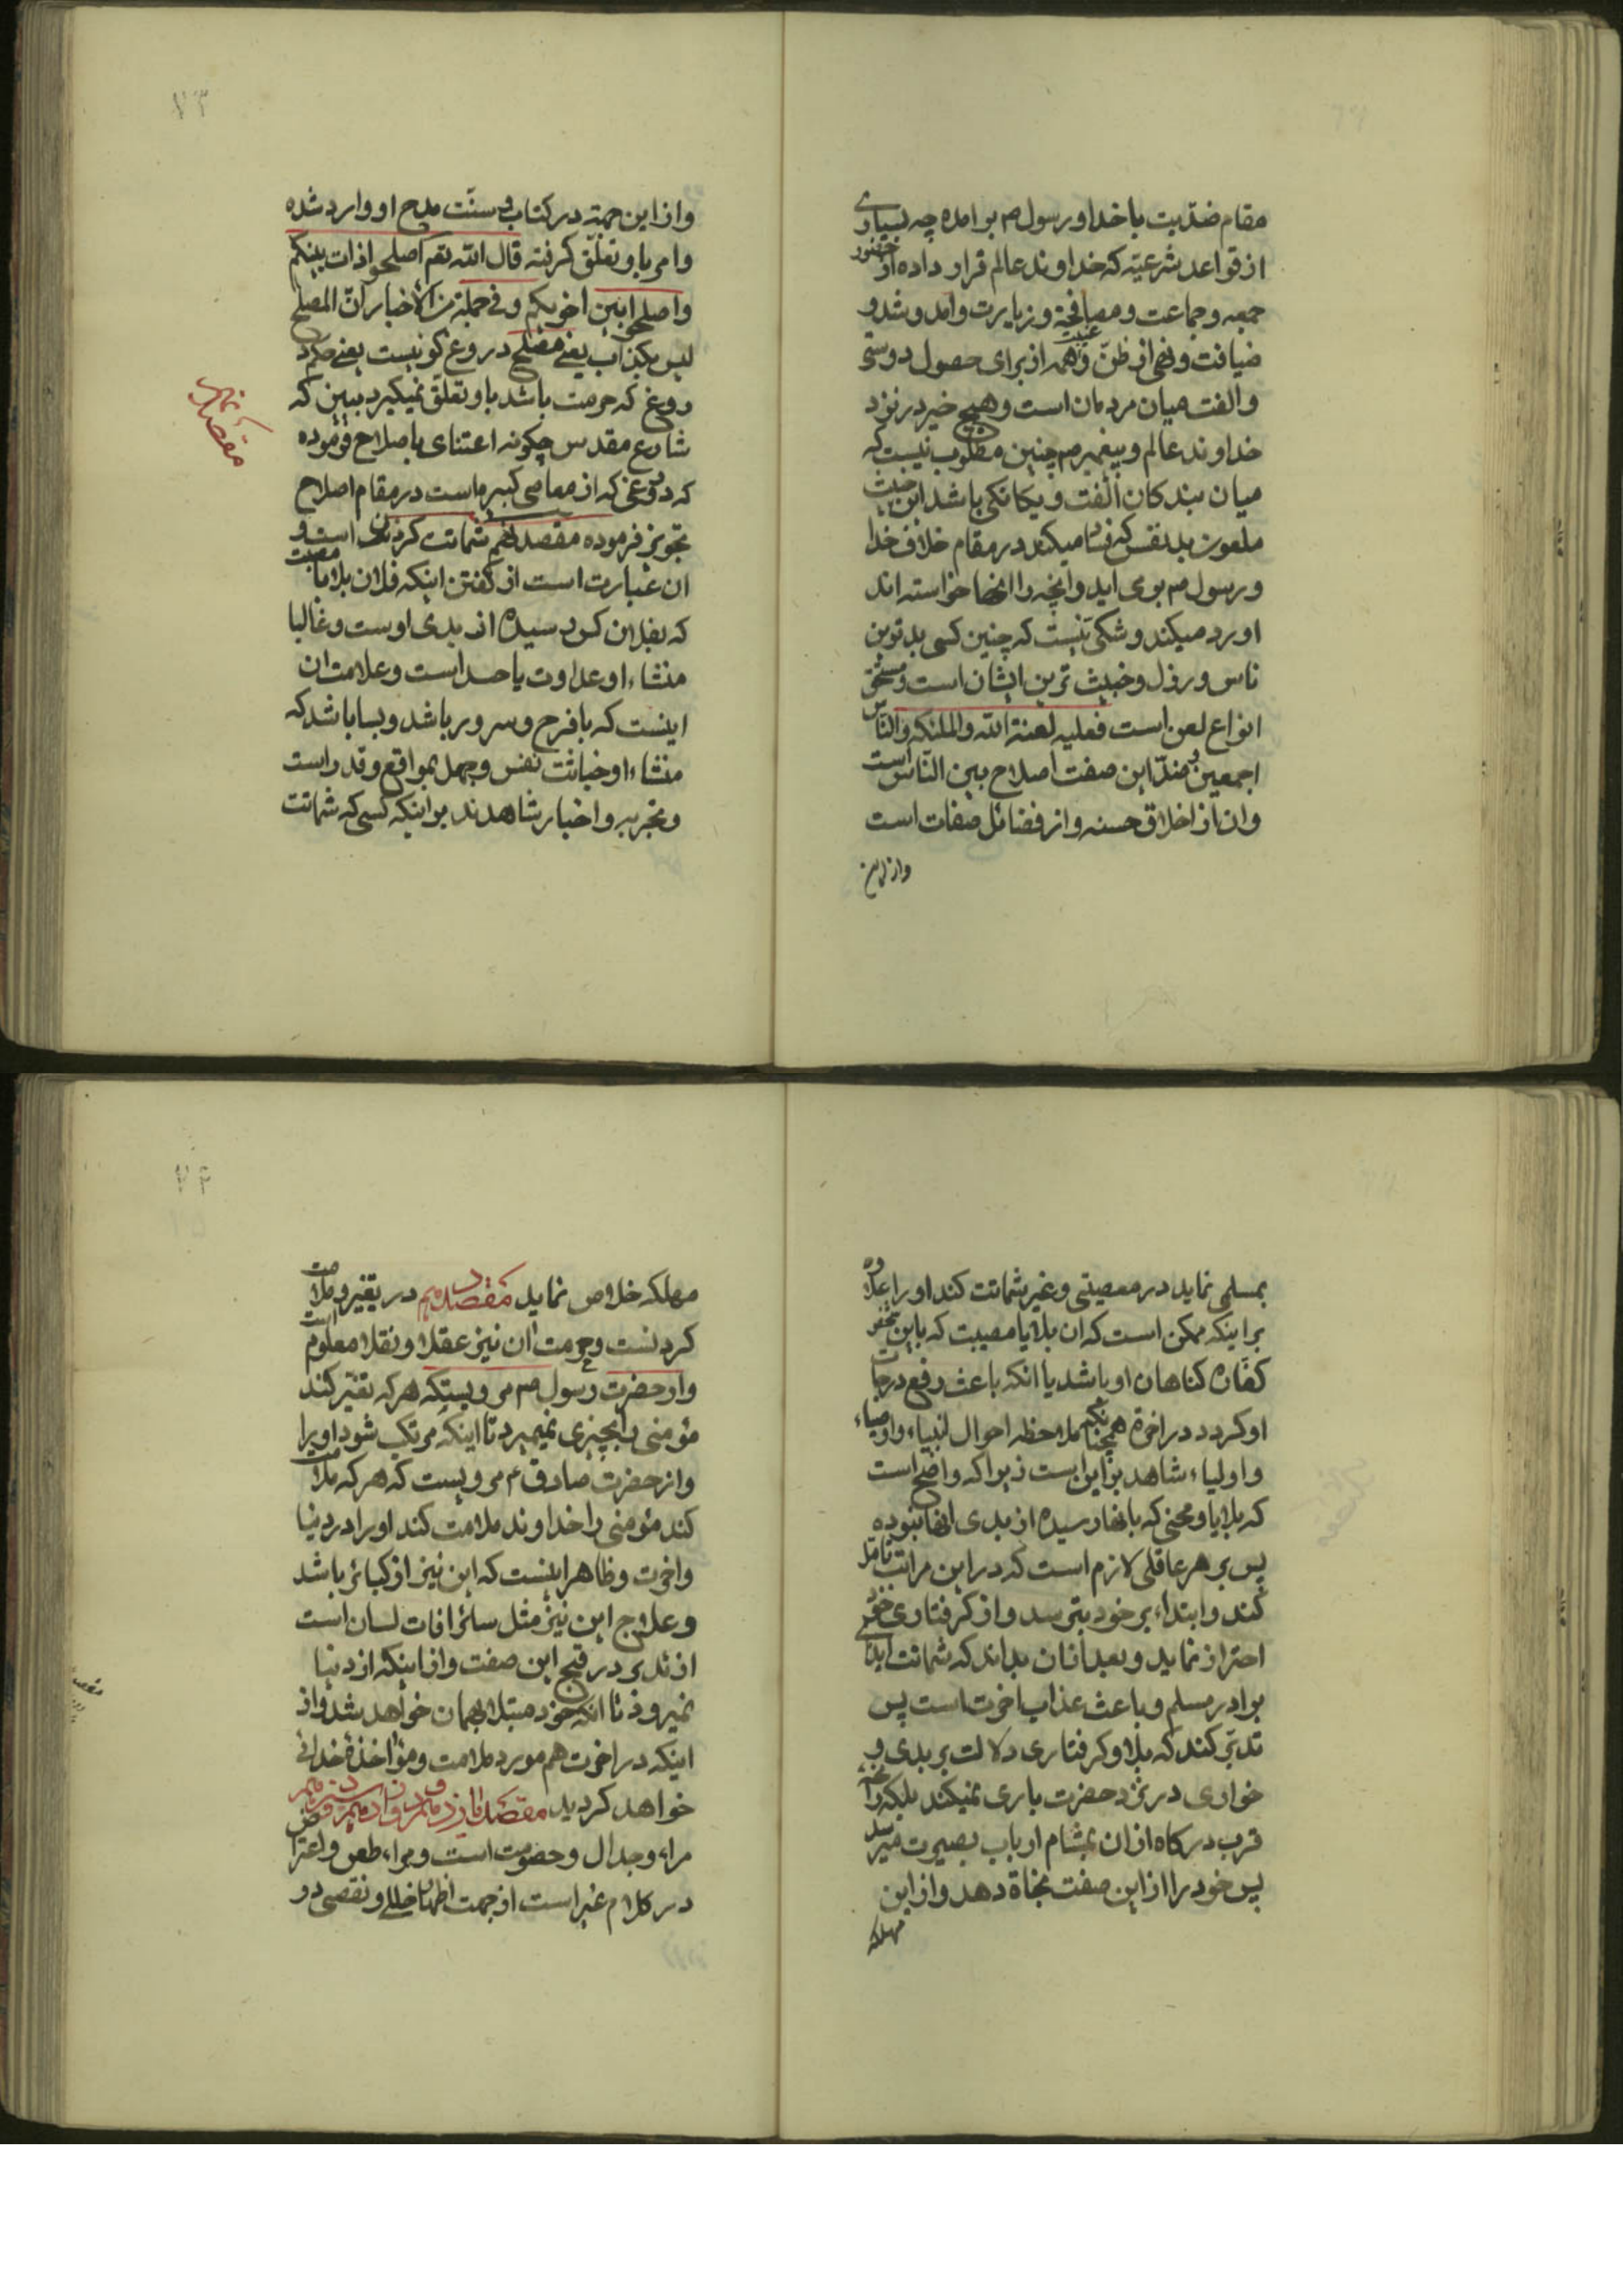 مقام ضدّیت با خدا و رسول ص بر امده چه بسیاری
از قواعد شرعیّه که خداوند عالم قرار داده از حضور
جمعه و جماعت و مصافحة و زیارت و امد و شد و
ضیافت و نهی از ظنّ و غیبت همه از برای حصول دوستی
و الفت میان مردمان است و هیچ خیر در نزد
خداوند عالم و پیغمبر ص چنین مطلوب نیست که
میان بندکان الفت و یکانکی باشد این خبیث
ملعون بد نفس که میکند در مقام خلاف خدا
و رسول ص بر می اید و انچه را انها خواسته اند
او رد میکند و شکی نیست که چنین کسی بدترین
ناس و رذل و خبیث ترین ایشان است و مستحق
انواع لعن است فعلیه لعنة الله والملئکه والناس
اجمعین و ضدّ این صفت اصلاح بین الناس است
و ان از اخلاق حسنه و از فضائل صفات است
و از این
۷۳
و از این جهة در کتاب و سنّت مدح او وارد شده
و امر باو تعلّق کرفته قال الله تعم اصلحوا ذات بینکم
و اصلحوا بین اخویکم و فی جملة من الأخبار انّ المصلح
لیس بکذاب یعنی مصلح دروغ کو نیست یعنی حکم
دروغ که حرمت باشد باو تعلّق نمیکیرد ببین که
شارع مقدس چکونه اعتنای باصلاح فرموده
که دروغی که از معاصی کبیره است در مقام اصلاح
تجویز فرموده مقصد نهم شماتت کردن است و
ان عبارت است از کفتن اینکه فلان بلا یا مصیبت
که بفلان کس رسیده از بدی اوست و غالبا
منشاء او عداوت یا حسد است و علامت ان
اینست که با فرح و سرور باشد و بسا باشد که
منشاء او خباثت نفس و جهل بمواقع و قدر است
و تجربه و اخبار شاهدند بر اینکه کسی که شماتت
مقصد نهم
بمسلمی نماید در معصیتی و غیر شماتت کند او را علاوه
بر اینکه ممکن است که ان بلا یا مصیبت که باین شخص
کفّاره کناهان او باشد یا انکه باعث رفع درجات
او کردد در اخرة همچنانکه ملاحظه احوال انبیاء و اوصیاء
و اولیاء شاهد بر این است زیرا که واضح است
که بلایا و محنی که بانها رسیده از بدی انها نبوده
پس بر هر عاقلی لازم است که در این مراتب تامّل
کند و ابتداء بر خود بترسد و از کرفتاری خود
احتراز نماید و بعد از ان بداند که شماتت ایذای
برادر مسلم و باعث عذاب اخرت است پس
تدبّر کند که بلا و کرفتاری دلالت بر بدی و
خواری در نزد حضرت باری نمیکند بلکه
قرب درکاه از ان بمشام ارباب بصیرت میرسد
پس خود را از این صفت نجاة دهد و از این
مهلکه
۷۴
مهلکه خلاص نماید مقصد دهم در تغیر و ملامت
کردنست و حرمت ان نیز عقلا و نقلا معلوم است
و از حضرت رسول ص مرویست که هر که تغیّر کند
مؤمنی را بچیزی نمیمیرد تا اینکه مرتکب شود او را
و از حضرت صادق ع مرویست که هر که ملامت
کند مؤمنی را خداوند ملامت کند او را در دنیا
و اخرت و ظاهر اینست که این نیز از کبائر باشد
و علاج این نیز مثل سائر افات لسان است
از تدبر در قبح این صفت و از اینکه از دنیا
نمیرود تا انکه خود مبتلا بهمان خواهد شد و از
اینکه در اخرت هم مورد ملامت و مؤاخذه خدائی
خواهد کردید مقصد یازدهم و دوازدهم و سیزدهم
مراء و جدال و خصومت است و مراء طعن و اعتراض
در کلام غیر است از جهت اظهار خللی و نقصی در